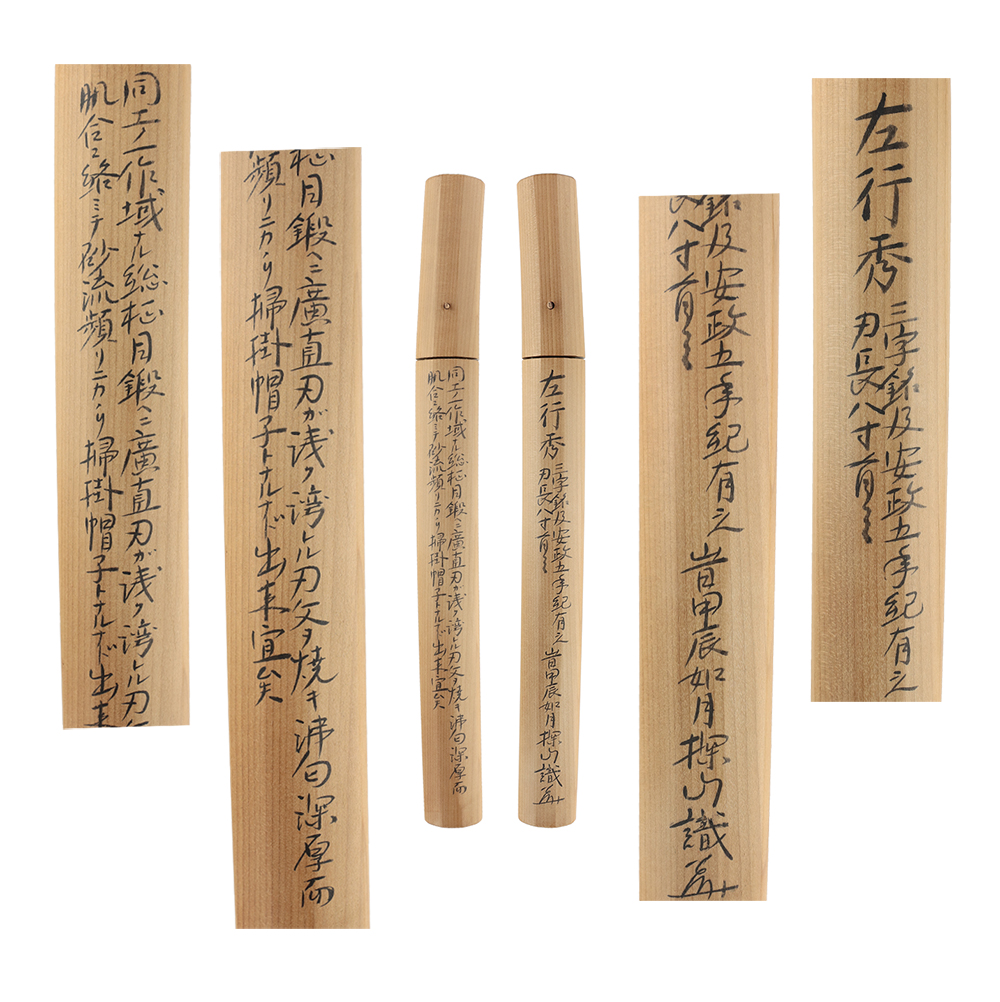 左行秀
三字銘及安政五年紀有之
刃長八寸有之
銘及安政五年紀有之 旹甲辰如月探山識
八寸有之
左行秀
三字銘及安政五年紀有之 旹甲辰如月探山識
刃長八寸有之
同工ノ作域ナル総柾目鍛ヘニ廣直刃ガ浅ク湾レル刃文ヲ焼キ沸匂深厚而
肌合ニ絡ミテ砂流頻リニカヽリ掃掛帽子トナルナド出来宜矣
柾目鍛ヘニ廣直刃ガ浅ク湾レル刃文ヲ焼キ沸匂深厚而
頻リニカヽリ掃掛帽子トナルナド出来宜矣
同工ノ作域ナル総柾目鍛ヘニ廣直刃ガ浅ク湾レル刃
肌合ニ絡ミテ砂流頻リニカヽリ掃掛帽子トナルナド出来